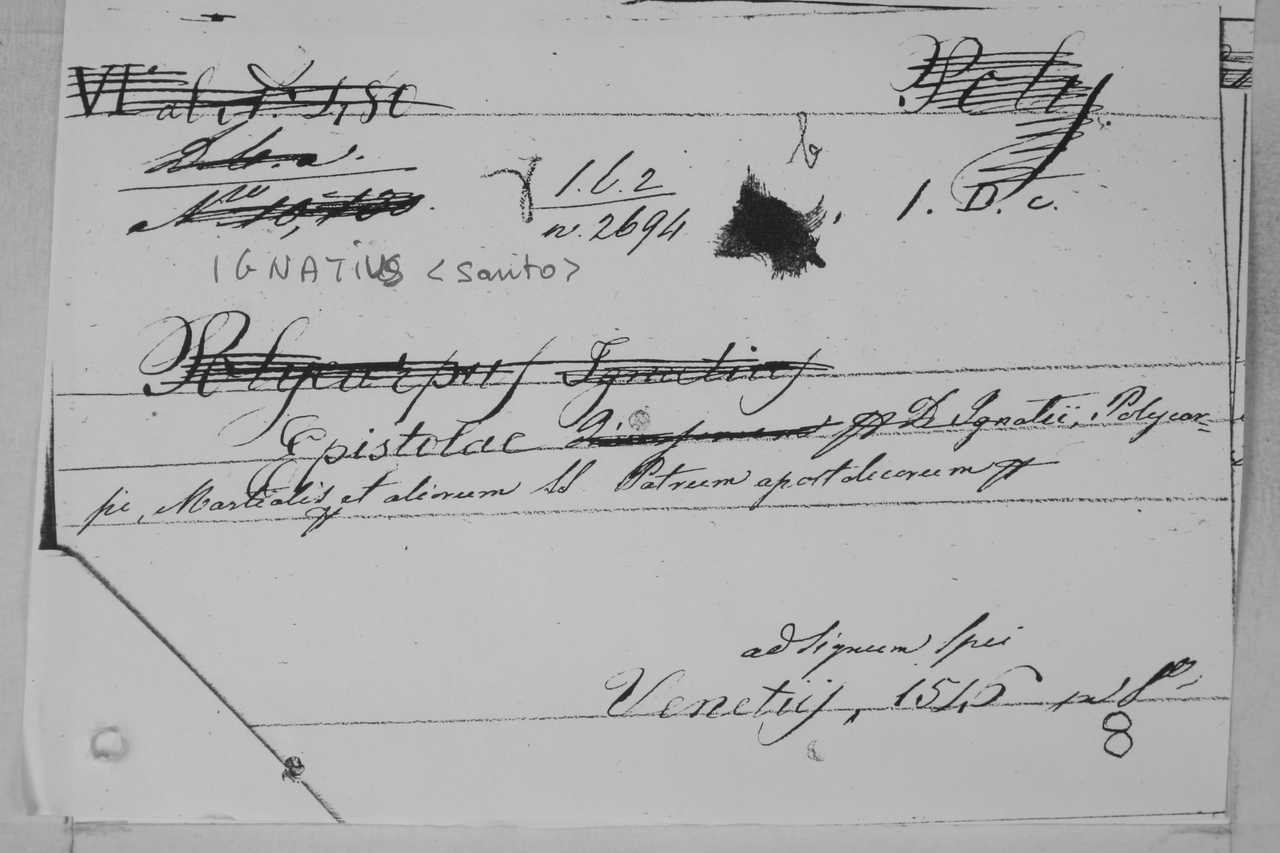 Poly
b
1.6.2
n. 2694
1. D. c.
IGNATIUS <santo>
Polycarpus Ignatius
Epistolae D. Ignatii, Polycar=
pi, Martialis et aliorum SS Patrum apostolicorum
ad signum Spei
Venetiis, 1546 in 8º
8